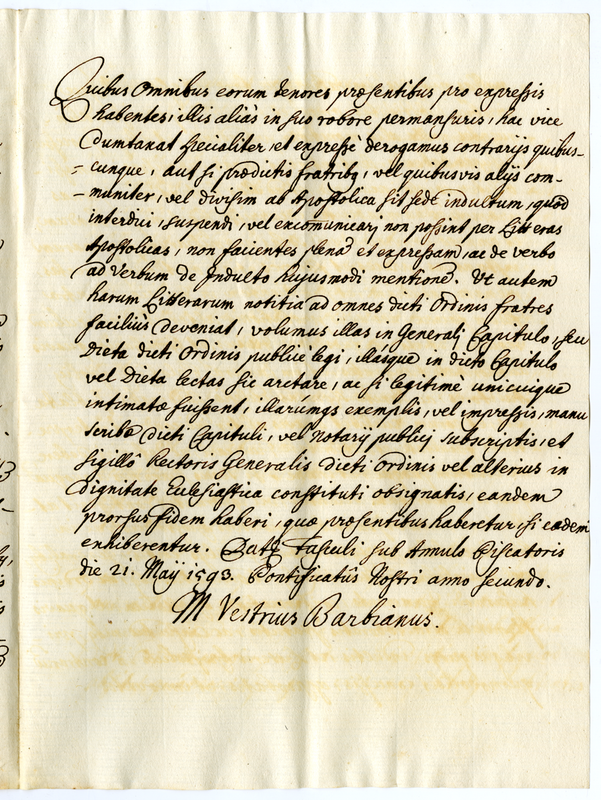 Quibus Omnibus eorum tenores præsentibus pro expressis
habentes, illis aliàs in suo robore permansuris, hac vice
dumtaxat specialiter, et expressè derogamus contrarijs quibus-
cunque, aut si prædictis fratribq, vel quibusvis alijs com-
muniter, vel divisim ab Apostolica sit sede indultum, quod
interdici, suspendi, vel excomunicarj non possint per Litteras
Apostolicas, non facientes plenã et expressam, ac de verbo
ad Verbum de Indulto huiusmodi mentionẽ. Vt autem
harum Litterarum notitia ad omnes dicti Ordinis fratres
faciliùs deveniat, volumus illas in Generalj Capitulo, seu
Dieta dicti Ordinis publicè legi, illasque in dicto Capitulo
vel Dieta lectas sic arctare, ac si legitimè unicuique
intimatæ fuissent, illarumqs exemplis, vel impressis, manu
scribæ dicti Capituli, vel notarij publicj subscriptis, et
sigillo Rectoris Generalis dicti Ordinis vel alterius in
dignitate Eclesiastica constituti obsignatis, eandem
prorsus fidem haberi, quæ præsentibus haberetur, si eædem
exhiberentur. Datũ Tusculi sub Annulo Piscatoris
die 21. Maij 1593. Pontificatûs Nostri anno secundo.
M Vestrius Barbianus.